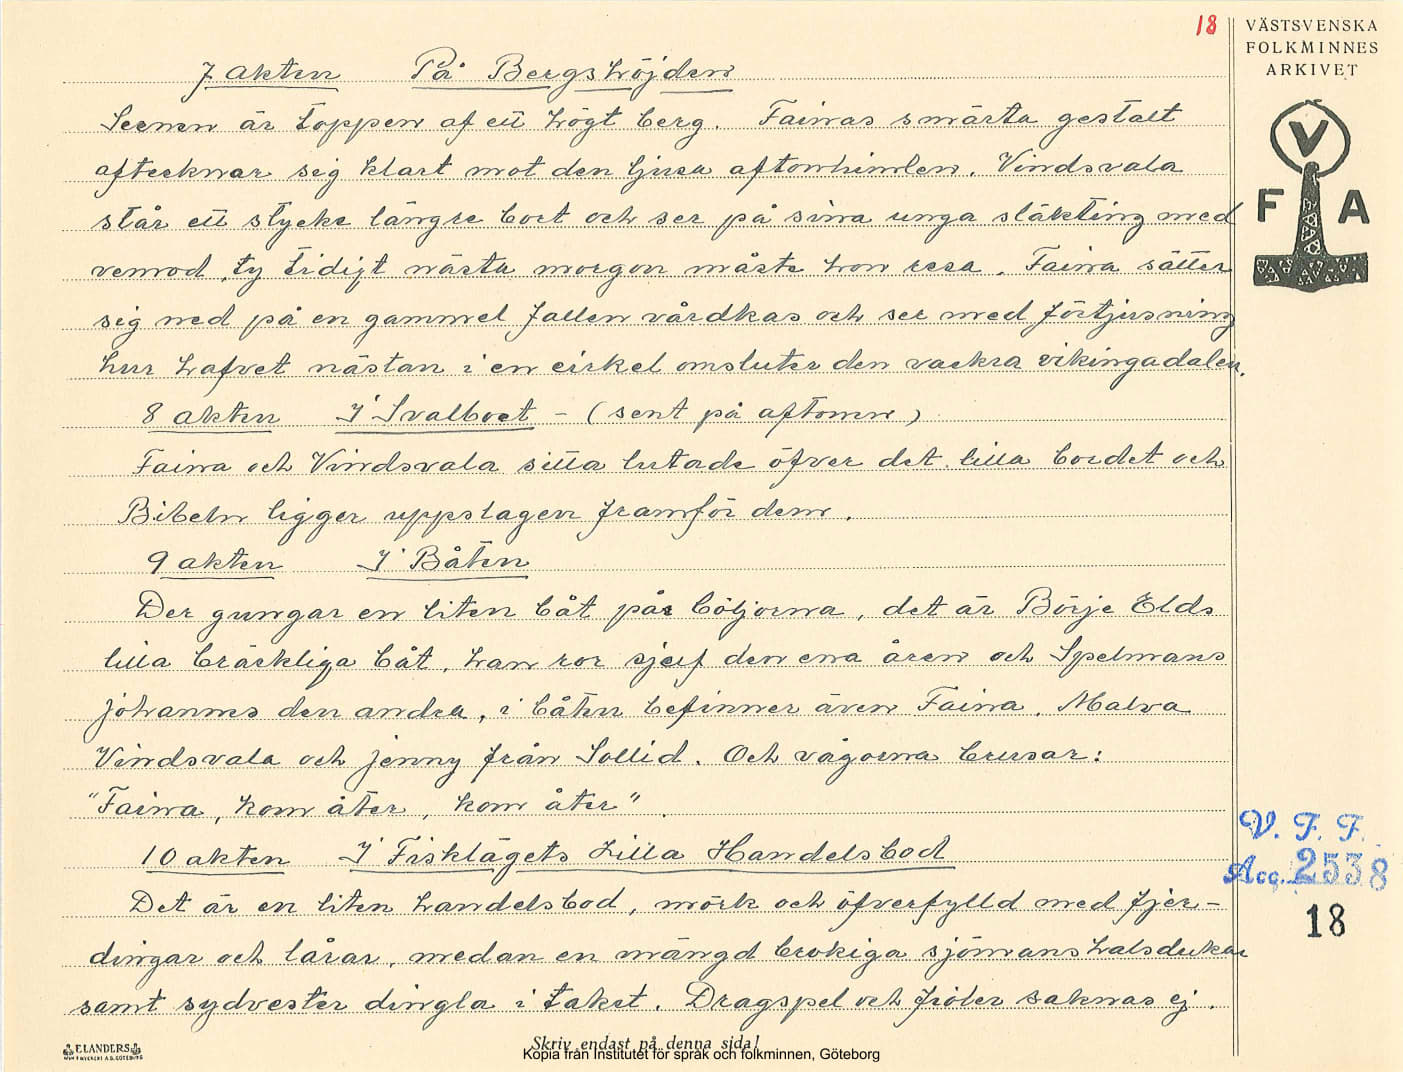 18
VÄSTSVENSKA
FOLKMINNES
ARKIVET
V
F A
7 akten På Bergshöjden
Scenen är toppen af ett högt berg. Fainas smärta gestalt
aftecknar sig klart mot den ljusa aftonhimlen. Vindsvala
står ett stycke längre bort och ser på sina unga släkting med
vemod, ty tidigt nästa morgon måste hon resa. Faina sätter
sig ned på en gammel fallen vårdkas och ser med förtjusning
hur hafvet nästan i en cirkel omsluter den vackra vikingadalen.
8 akten I Svalboet - (sent på aftonen)
Faina och Vindsvala sitta lutade öfver det lilla bordet och
Bibeln ligger uppslagen framför dem.
9 akten I Båten
Der gungar en liten båt på böljorna, det är Börje Elds
lilla bräckliga båt, han ror sjelf den ena åren och Spelmans
johannes den andra, i båten befinner även Faina. Malva
Vindsvala och jenny från Sollid. Och vågorna brusar:
"Faina, kom åter, kom åter".
10 akten I Fisklägets Lilla Handelsbod
Det är en liten handelsbod, mörk och öfverfylld med fjer-
dingar och lårar, medan en mängd brokiga sjömanshalsdukar
samt sydvester dingla i taket. Dragspel och fioler saknas ej.
V. F. F.
Acc. 2538
18
Skriv endast på denna sida!
Kopia från Institutet för språk och folkminnen, Göteborg
ELANDERS